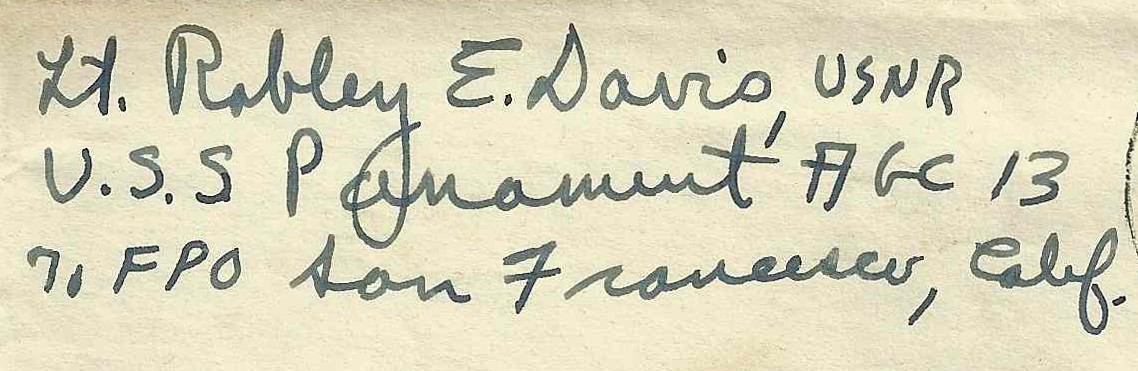 Lt. Robley E. Davis, USNR
U.S.S Panamint AGC 13
℅ FPO San Francisco, Calif.